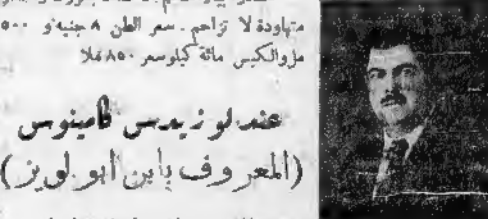 متهاودة لا تزاحم . سعر الطن ٨ جنيه و ٥٠٠
ملز والكيس مائة كيلو سعر ٨٥٠ ملا
عند لو زيدس كامينوس
(المعروف بابن ابو لويز)